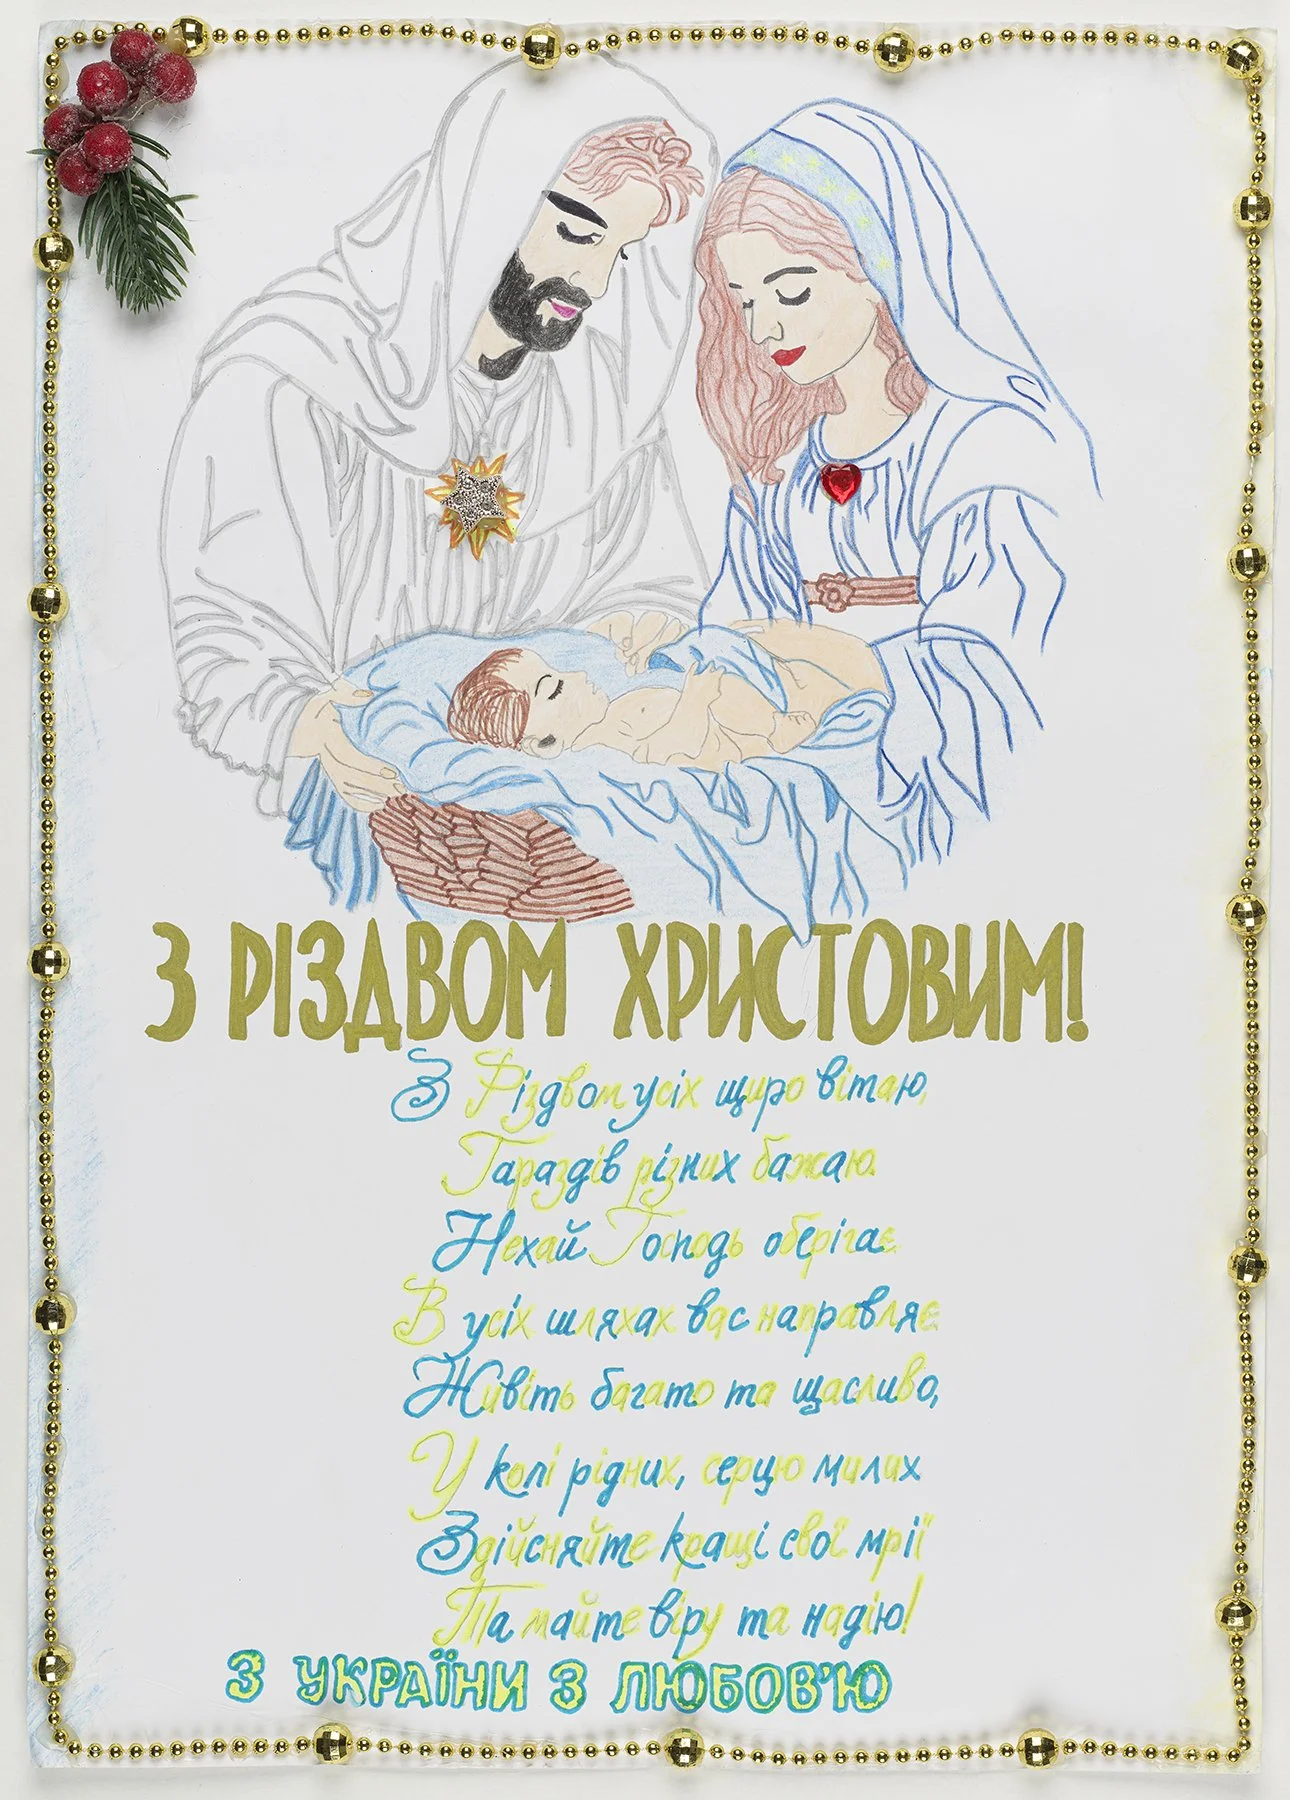 З РІЗДВОМ ХРИСТОВИМ!
З Різдвом усіх щиро вітаю,
Гараздів різних бажаю.
Нехай Господь оберігає
В усіх шляхах вас направляє
Живіть багато та щасливо,
У колі рідних, серцю милих
Здійсняйте кращі свої мрії
Та майте віру та надію!
З УКРАЇНИ З ЛЮБОВ'Ю